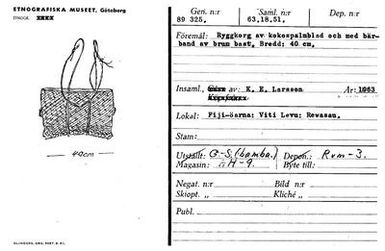 ETNOGRAFISKA MUSEET, Göteborg
40cm
Gen. n:r
89 325.
Saml. n:r
63,18.51.
Dep. n:r
Föremål: Ryggkorg av kokospalmblad och med bär-
band av brun bast. Bredd: 40 cm.
Insaml. av: K. E. Larsson
År: 1963
Lokal: Fiji-öarna: Viti Levu: Rewasau.
Stam:
Utställt: G-S (bamba.)
Depon.: Rum-3.
Magasin: H-9.
Byte till:
Negat. n:r
Bild n:r
Skiopt. „
Kliché „
Publ.